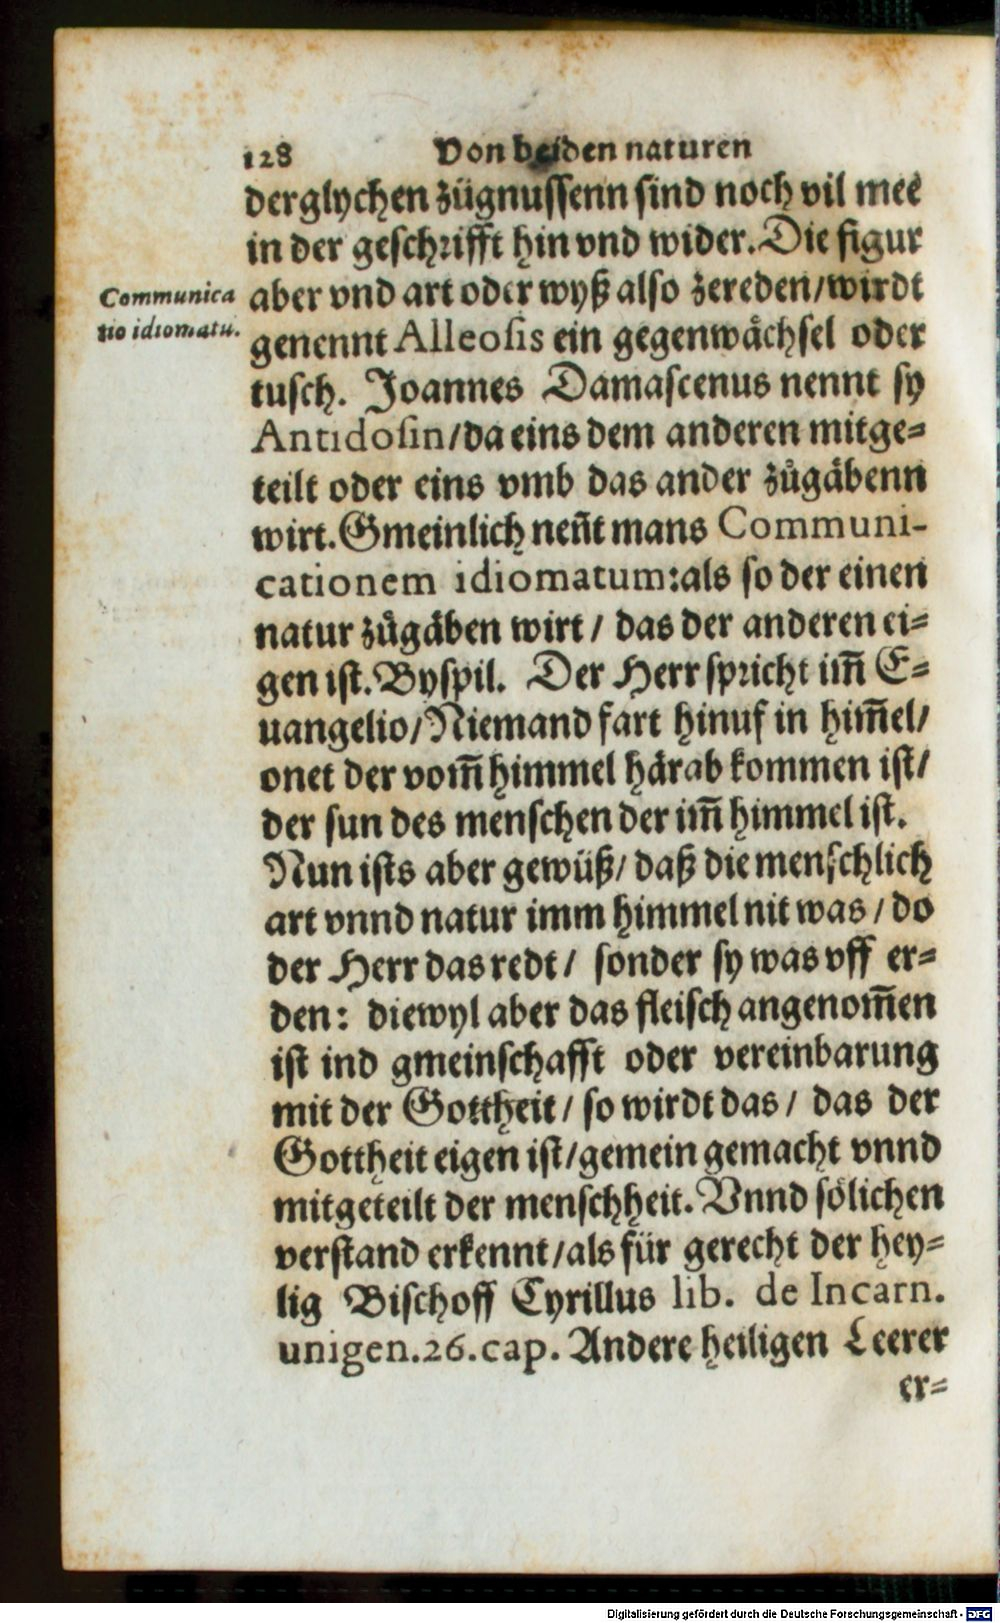 128 Von beiden naturen
derglychen zügnussenn sind noch vil meé
in der geschrifft hin vnd wider. Die figur
Communica
tio idiomatū.
aber vnd art oder wyß also zereden/wirdt
genennt Alleosis ein gegenwächsel oder
tusch. Joannes Damascenus nennt sy
Antidosin/da eins dem anderen mitge-
teilt oder eins vmb das ander zůgäbenn
wirt. Gmeinlich neñt mans Communi-
cationem idiomatum:als so der einen
natur zůgäben wirt / das der anderen ei-
gen ist. Byspil. Der Herr spricht im̄ E-
uangelio/Niemand fart hinuf in him̄el/
onet der vom̄ himmel härab kommen ist/
der sun des menschen der im̄ himmel ist.
Nun ists aber gewüß/ daß die menschlich
art vnnd natur imm himmel nit was / do
der Herr das redt / sonder sy was vff er-
den: diewyl aber das fleisch angenom̄en
ist ind gmeinschafft oder vereinbarung
mit der Gottheit / so wirdt das / das der
Gottheit eigen ist/gemein gemacht vnnd
mitgeteilt der menschheit. Vnnd sölichen
verstand erkennt/als für gerecht der hey-
lig Bischoff Cyrillus lib. de Incarn.
unigen.26.cap. Andere heiligen Leerer
er-
Digitalisierung gefördert durch die Deutsche Forschungsgemeinschaft - DFG